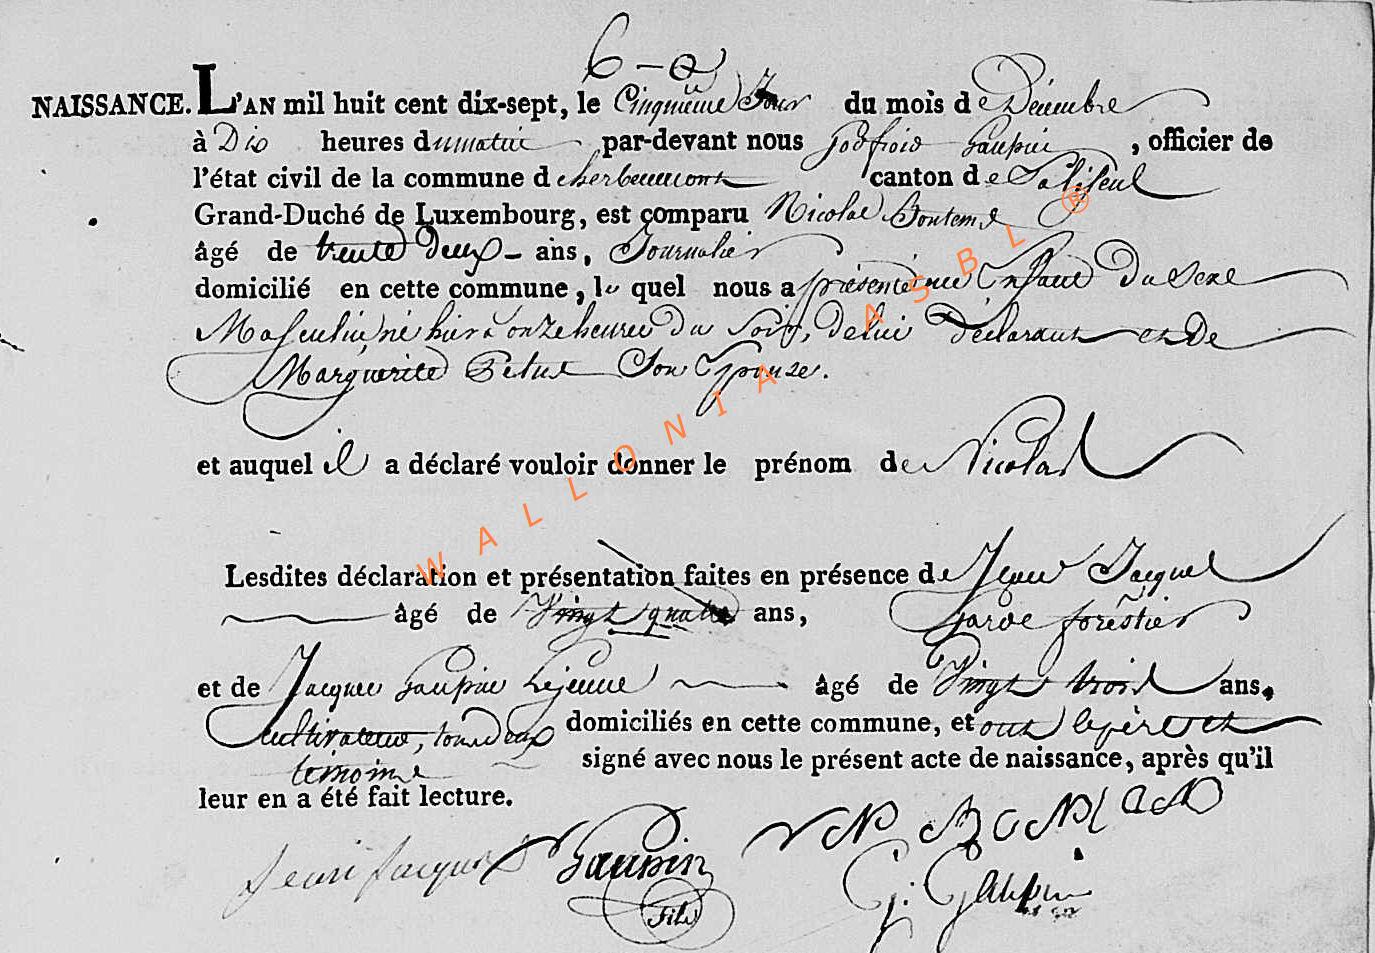 6 – a
NAISSANCE. L'AN mil huit cent dix-sept, le Cinquieme Jour du mois de Décembre
à Dix heures du matin par-devant nous Godfroid Gaupin, officier de
l'état civil de la commune d'herbeumont canton de Paliseul
Grand-Duché de Luxembourg, est comparu Nicolas Bontems
âgé de trente deux – ans, Journalier
domicilié en cette commune, le quel nous a présenté un Enfant du Sexe
Masculin, né hier à onze heures du Soir, de lui déclarant et De
Marguerite Son Epouse.
et auquel il a déclaré vouloir donner le prénom de Nicolas
Lesdites déclaration et présentation faites en présence de Jean Jacques
âgé de Vingt quatre ans, Garde forestier
et de Jacques Gaupin Lejeune âgé de Vingt trois ans.
Cultivateur, tous deux domiciliés en cette commune, et ont le père et
temoins signé avec nous le présent acte de naissance, après qu'il
leur en a été fait lecture.
Jean Jacques Gaupin
fils
G. Gaupin
WALLONIA ASBL ®